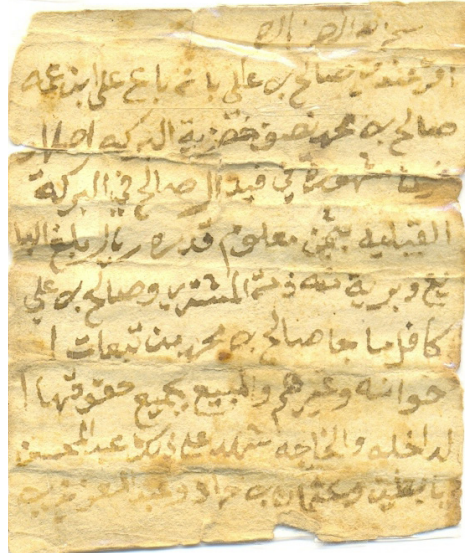 بسم الله الرحمن الرحيم
اقر عندي صالح بن علي بانه باع على ابن عمه
صالح بن محمد نصف خضرية البركه
شهورة في فيد ال صالح في البركة
القبليه بثمن معلوم قدره ريال بلغ البا
يع وبرية منه ذمة المشتري وصالح بن علي
كافل ما جا صالح بن محمد من تبعات ا
خوانه وغيرهم والمبيع بجميع حقوقها ا
لداخله والخارجه شهد على ذلك عبدالمحسن
وعثمان بن حماد وعبدالعزيز بن